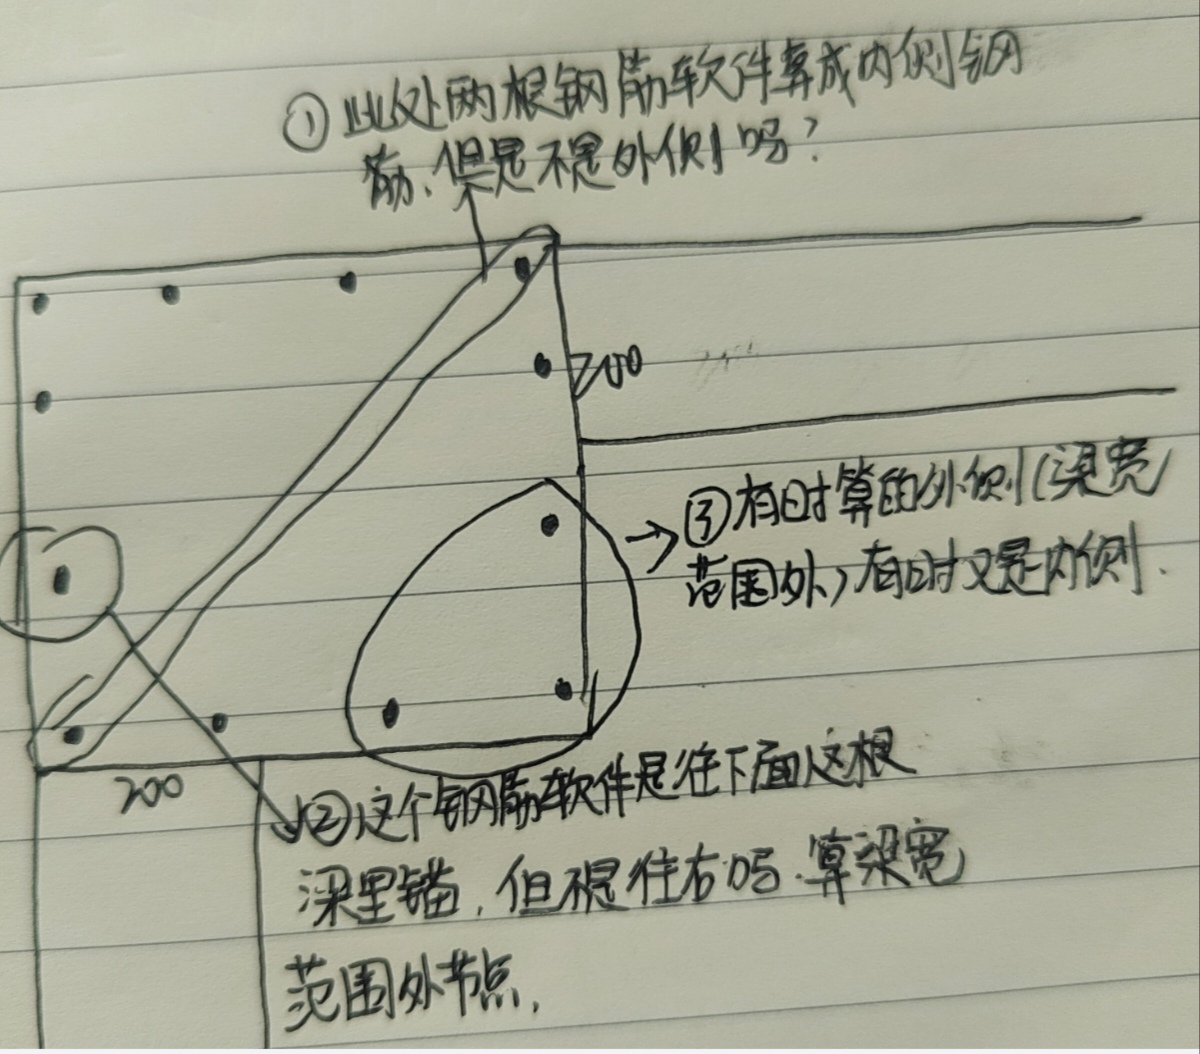 ① 此处两根钢筋软件算成内侧钢
筋、但是不是外侧吗?
200
③有时算的外侧(梁宽
范围外)有时又是内侧.
200
②这个钢筋软件是往下面这根
梁里锚,但不是往右吗.算梁宽
范围外节点.